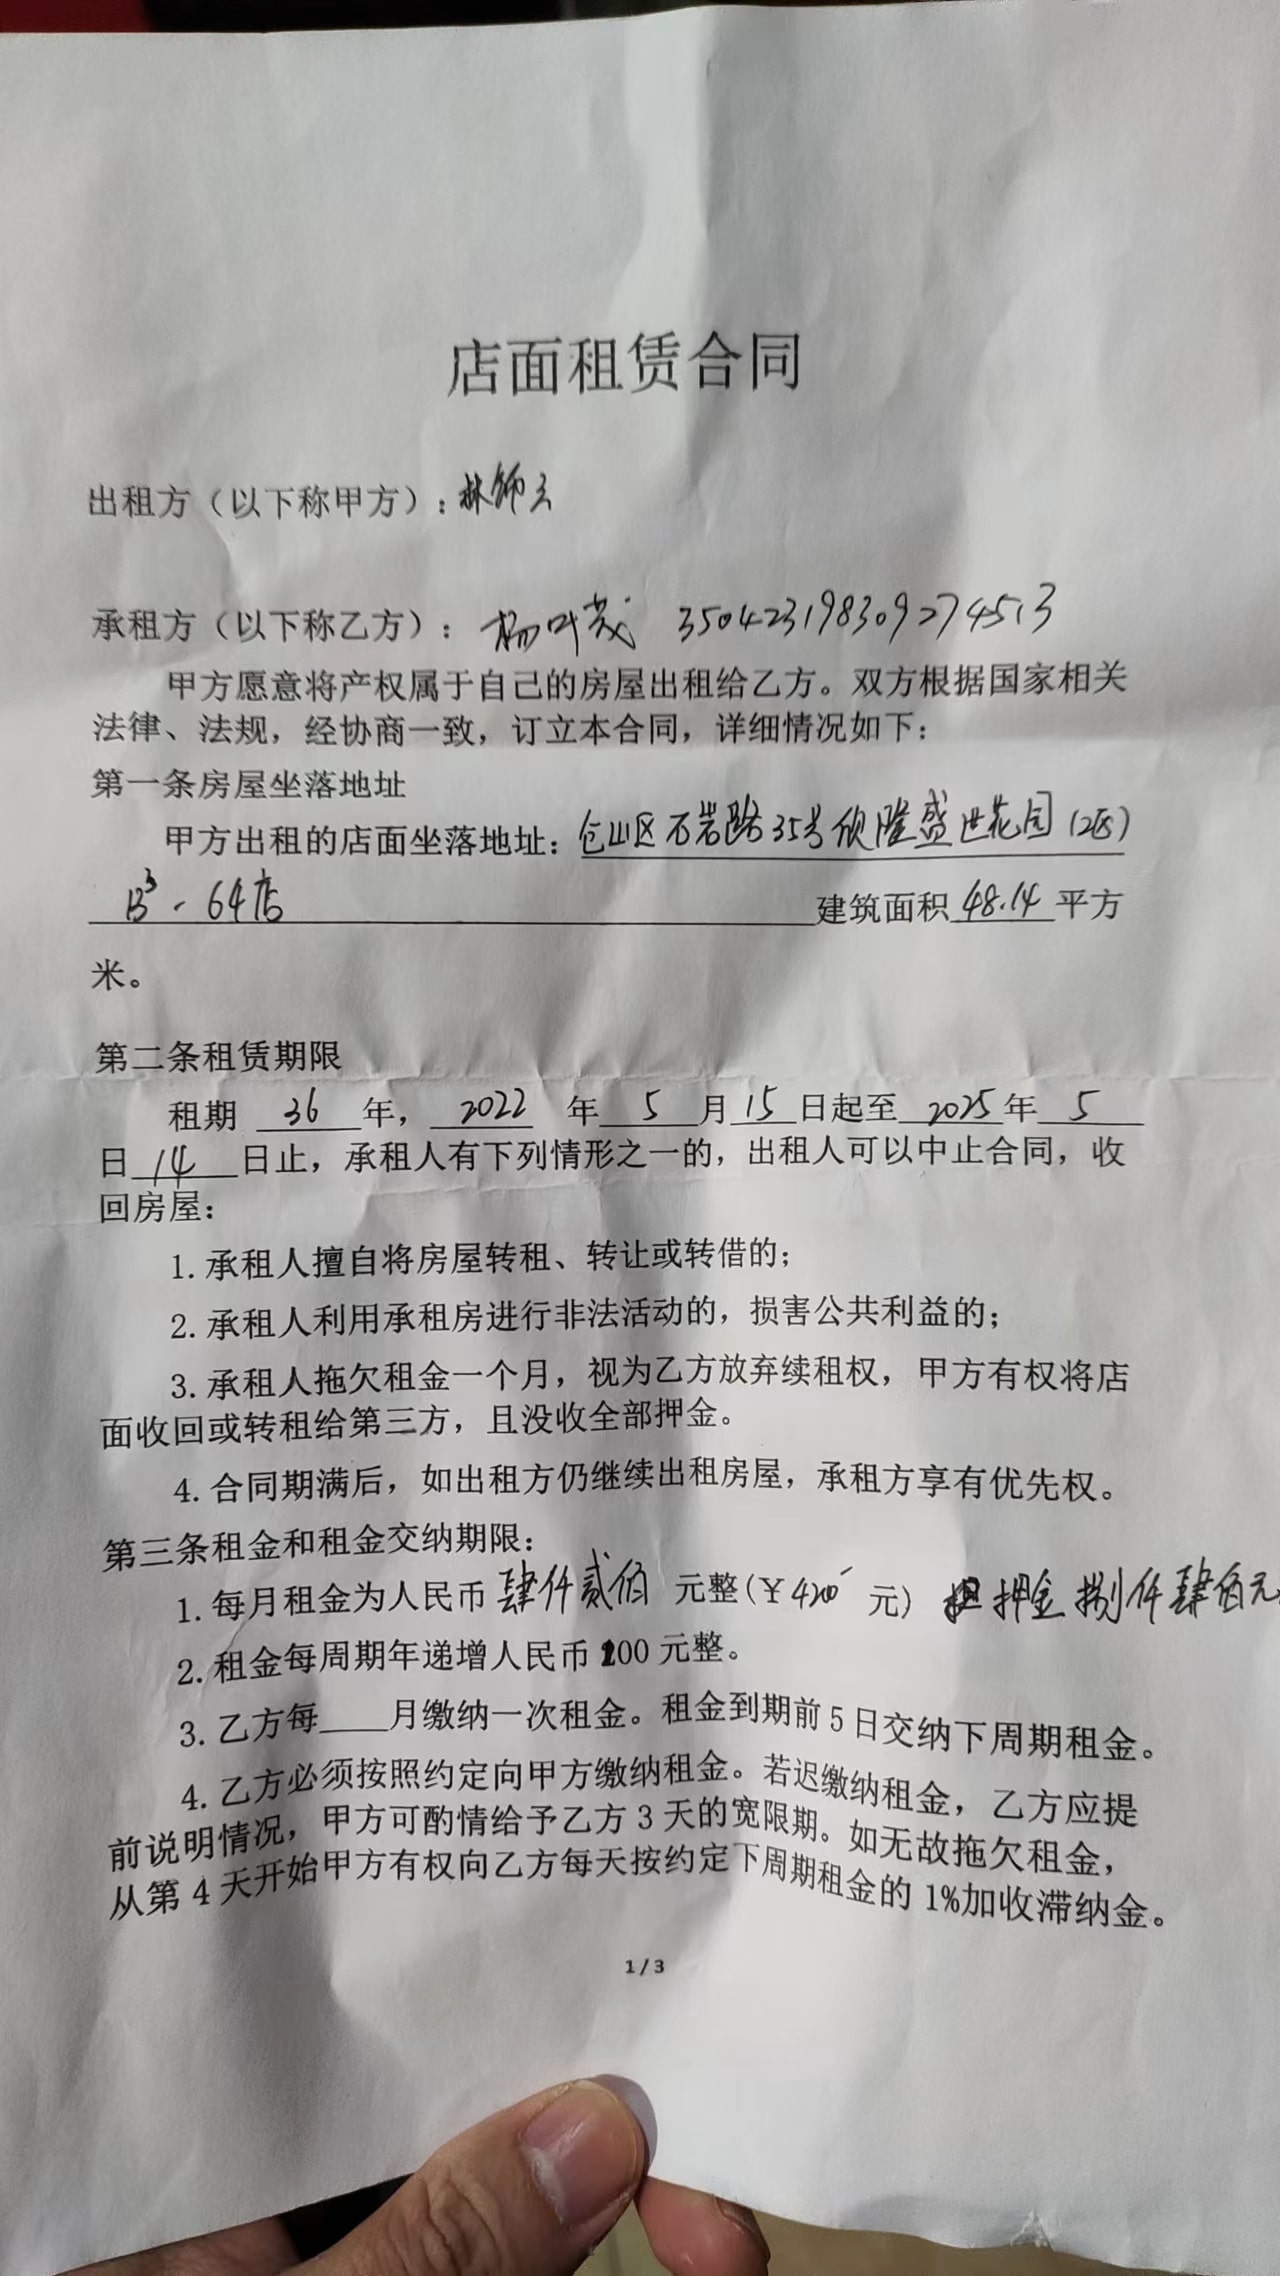 店面租赁合同
出租方（以下称甲方）：林师云
承租方（以下称乙方）：杨叶茂 350423198309274513
甲方愿意将产权属于自己的房屋出租给乙方。双方根据国家相关
法律、法规，经协商一致，订立本合同，详细情况如下：
第一条房屋坐落地址
甲方出租的店面坐落地址：仓山区石岩路35号欣隆盛世花园（2区）
B3-64店 建筑面积 48.14 平方
米。
第二条租赁期限
租期 36 年，2022 年 5 月 15 日起至 2025 年 5
日 14 日止，承租人有下列情形之一的，出租人可以中止合同，收
回房屋：
1.承租人擅自将房屋转租、转让或转借的；
2.承租人利用承租房进行非法活动的，损害公共利益的；
3.承租人拖欠租金一个月，视为乙方放弃续租权，甲方有权将店
面收回或转租给第三方，且没收全部押金。
4.合同期满后，如出租方仍继续出租房屋，承租方享有优先权。
第三条租金和租金交纳期限：
1.每月租金为人民币 肆仟贰佰 元整（￥4200 元） 押金捌仟肆佰元
2.租金每周期年递增人民币 100 元整。
3.乙方每____月缴纳一次租金。租金到期前 5 日交纳下周期租金。
4.乙方必须按照约定向甲方缴纳租金。若迟缴纳租金，乙方应提
前说明情况，甲方可酌情给予乙方 3 天的宽限期。如无故拖欠租金，
从第 4 天开始甲方有权向乙方每天按约定下周期租金的 1%加收滞纳金。
1 / 3